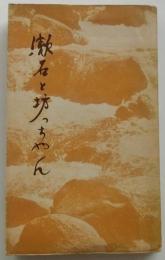 漱石と坊っちやん